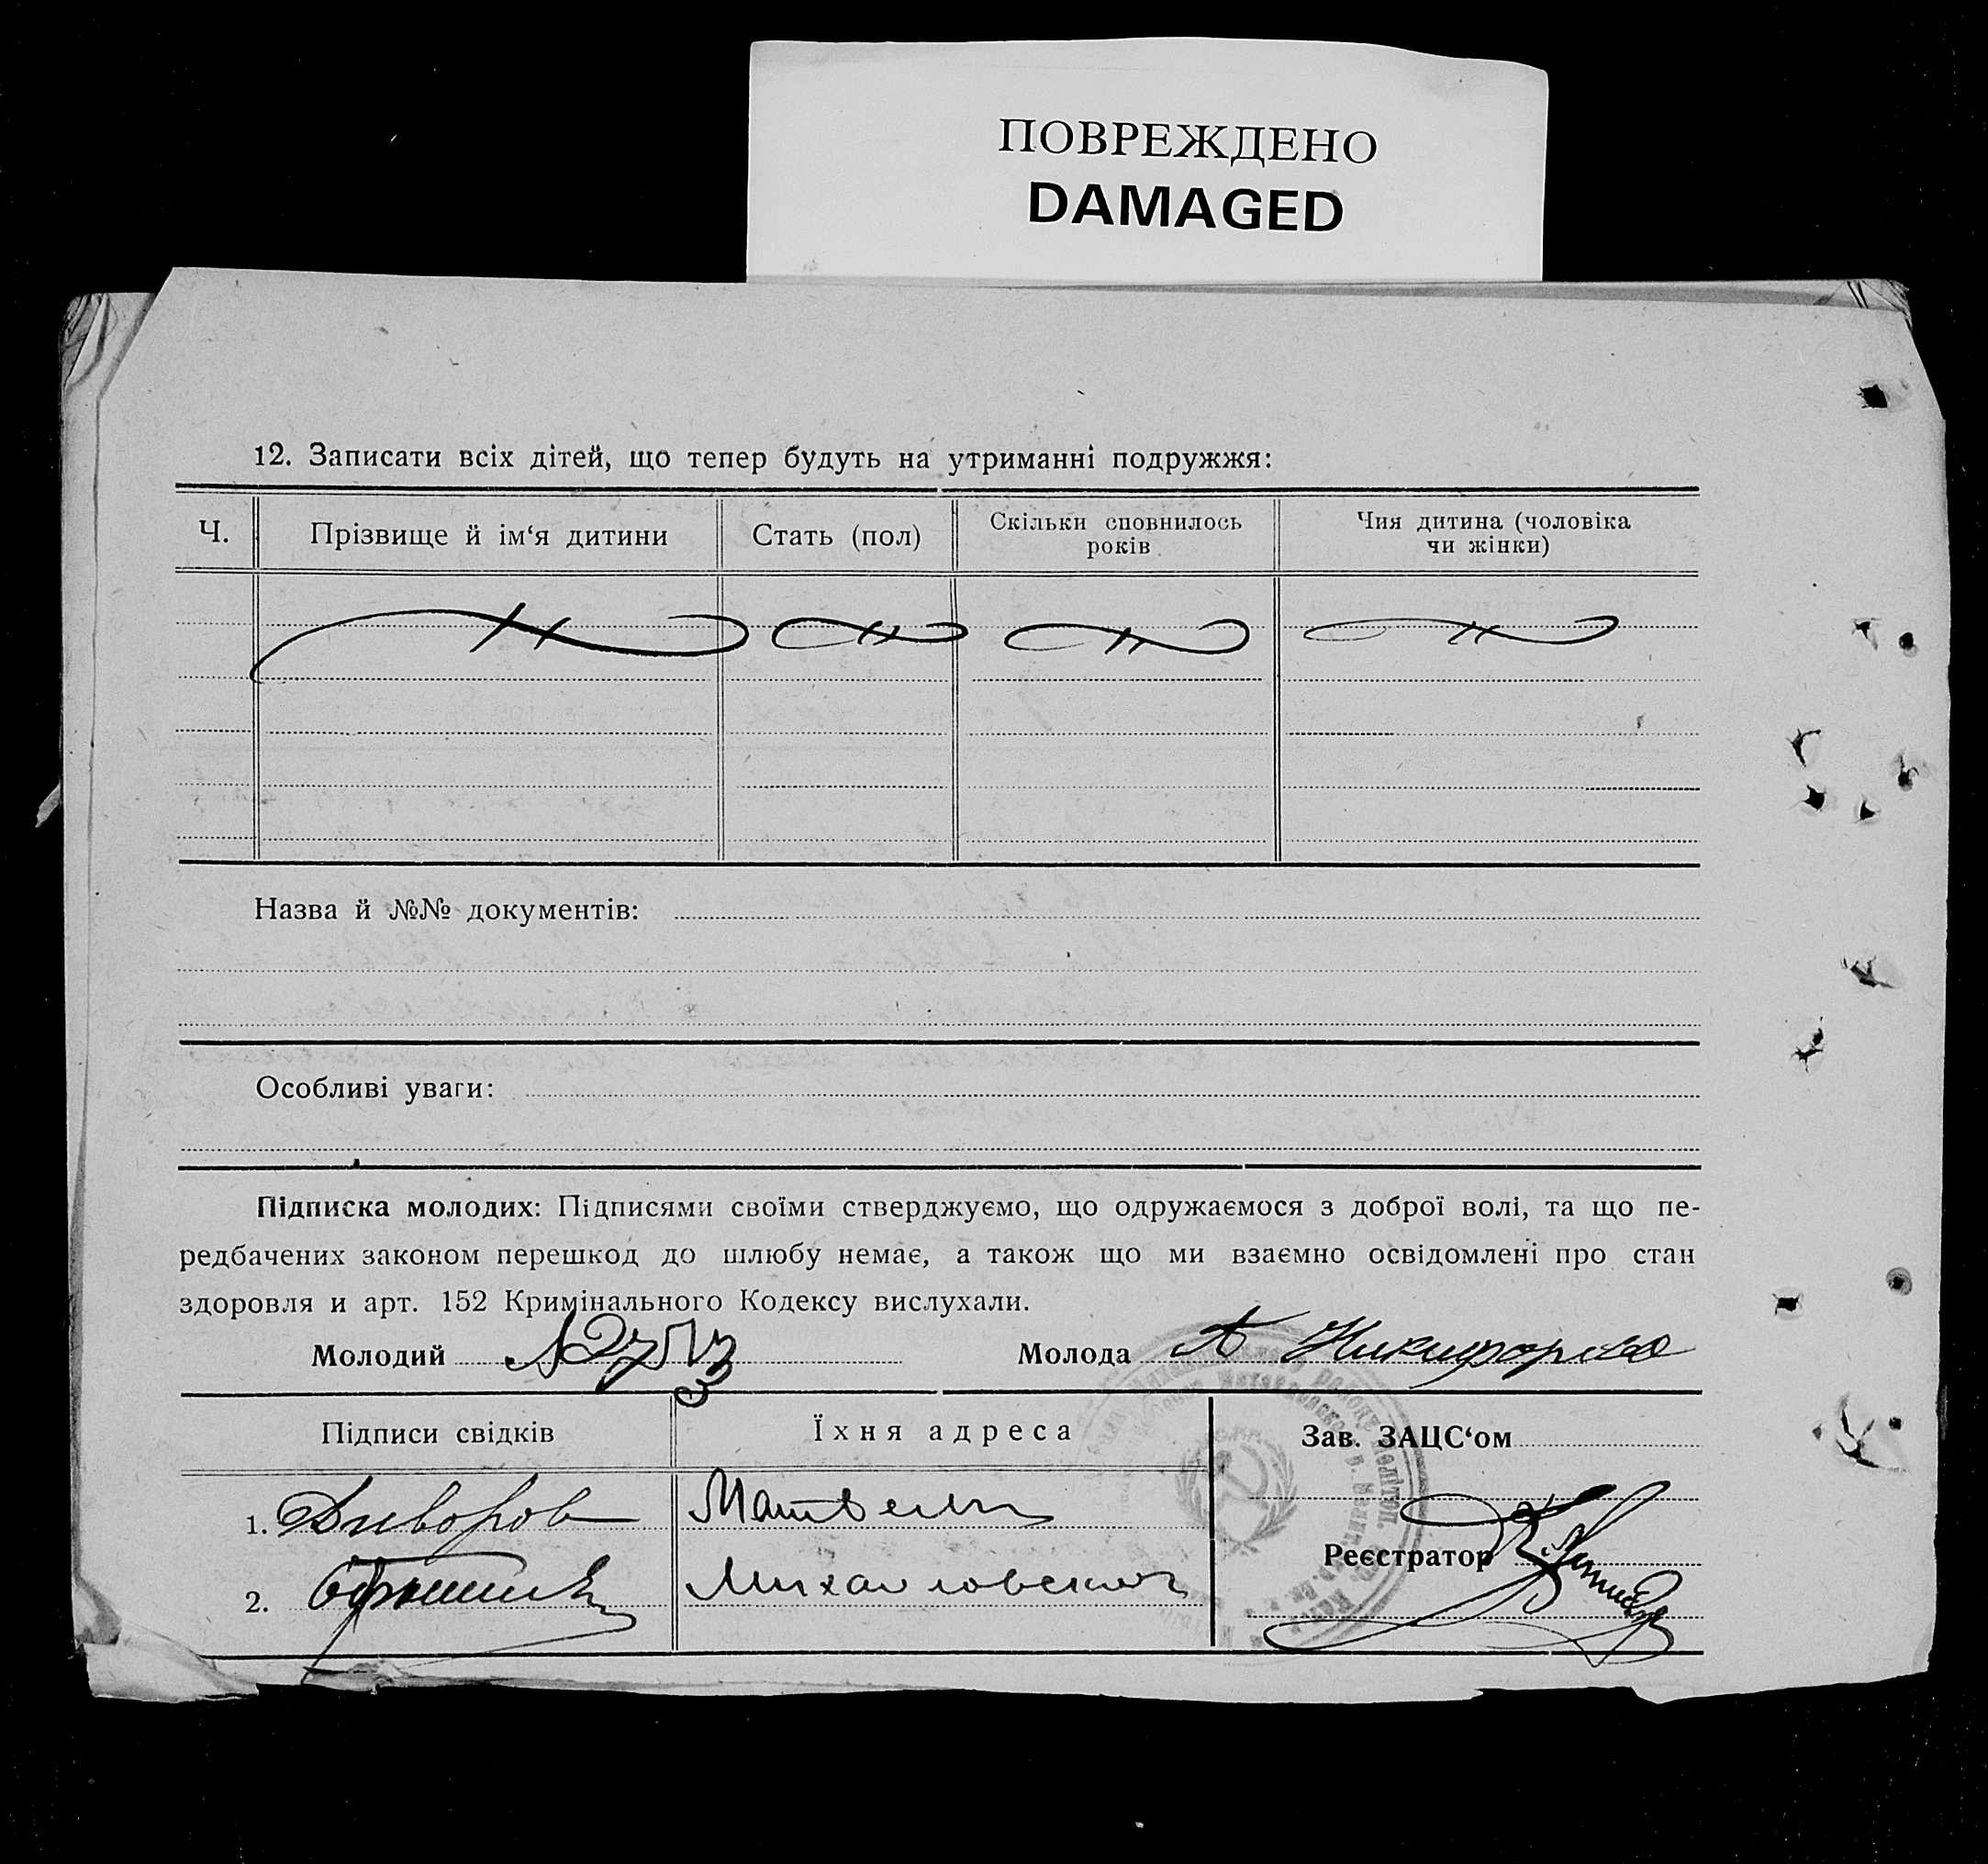 ПОВРЕЖДЕНО
DAMAGED
12. Записати всіх дітей, що тепер будуть на утриманні подружжя:
Ч.
Прізвище й ім‘я дитини
Стать (пол)
Скільки сповнилось
років
Чия дитина (чоловіка
чи жінки)
Назва й №№ документів:
Особливі уваги:
Підписка молодих: Підписями своїми стверджуємо, що одружаємося з доброї волі, та що пе-
редбачених законом перешкод до шлюбу немає, а також що ми взаємно освідомлені про стан
здоровля и арт. 152 Кримінального Кодексу вислухали.
Молодий
Молода А Никифорова
Підписи свідків
Їхня адреса
Зав. ЗАЦС‘ом
1.
Реєстратор
2.